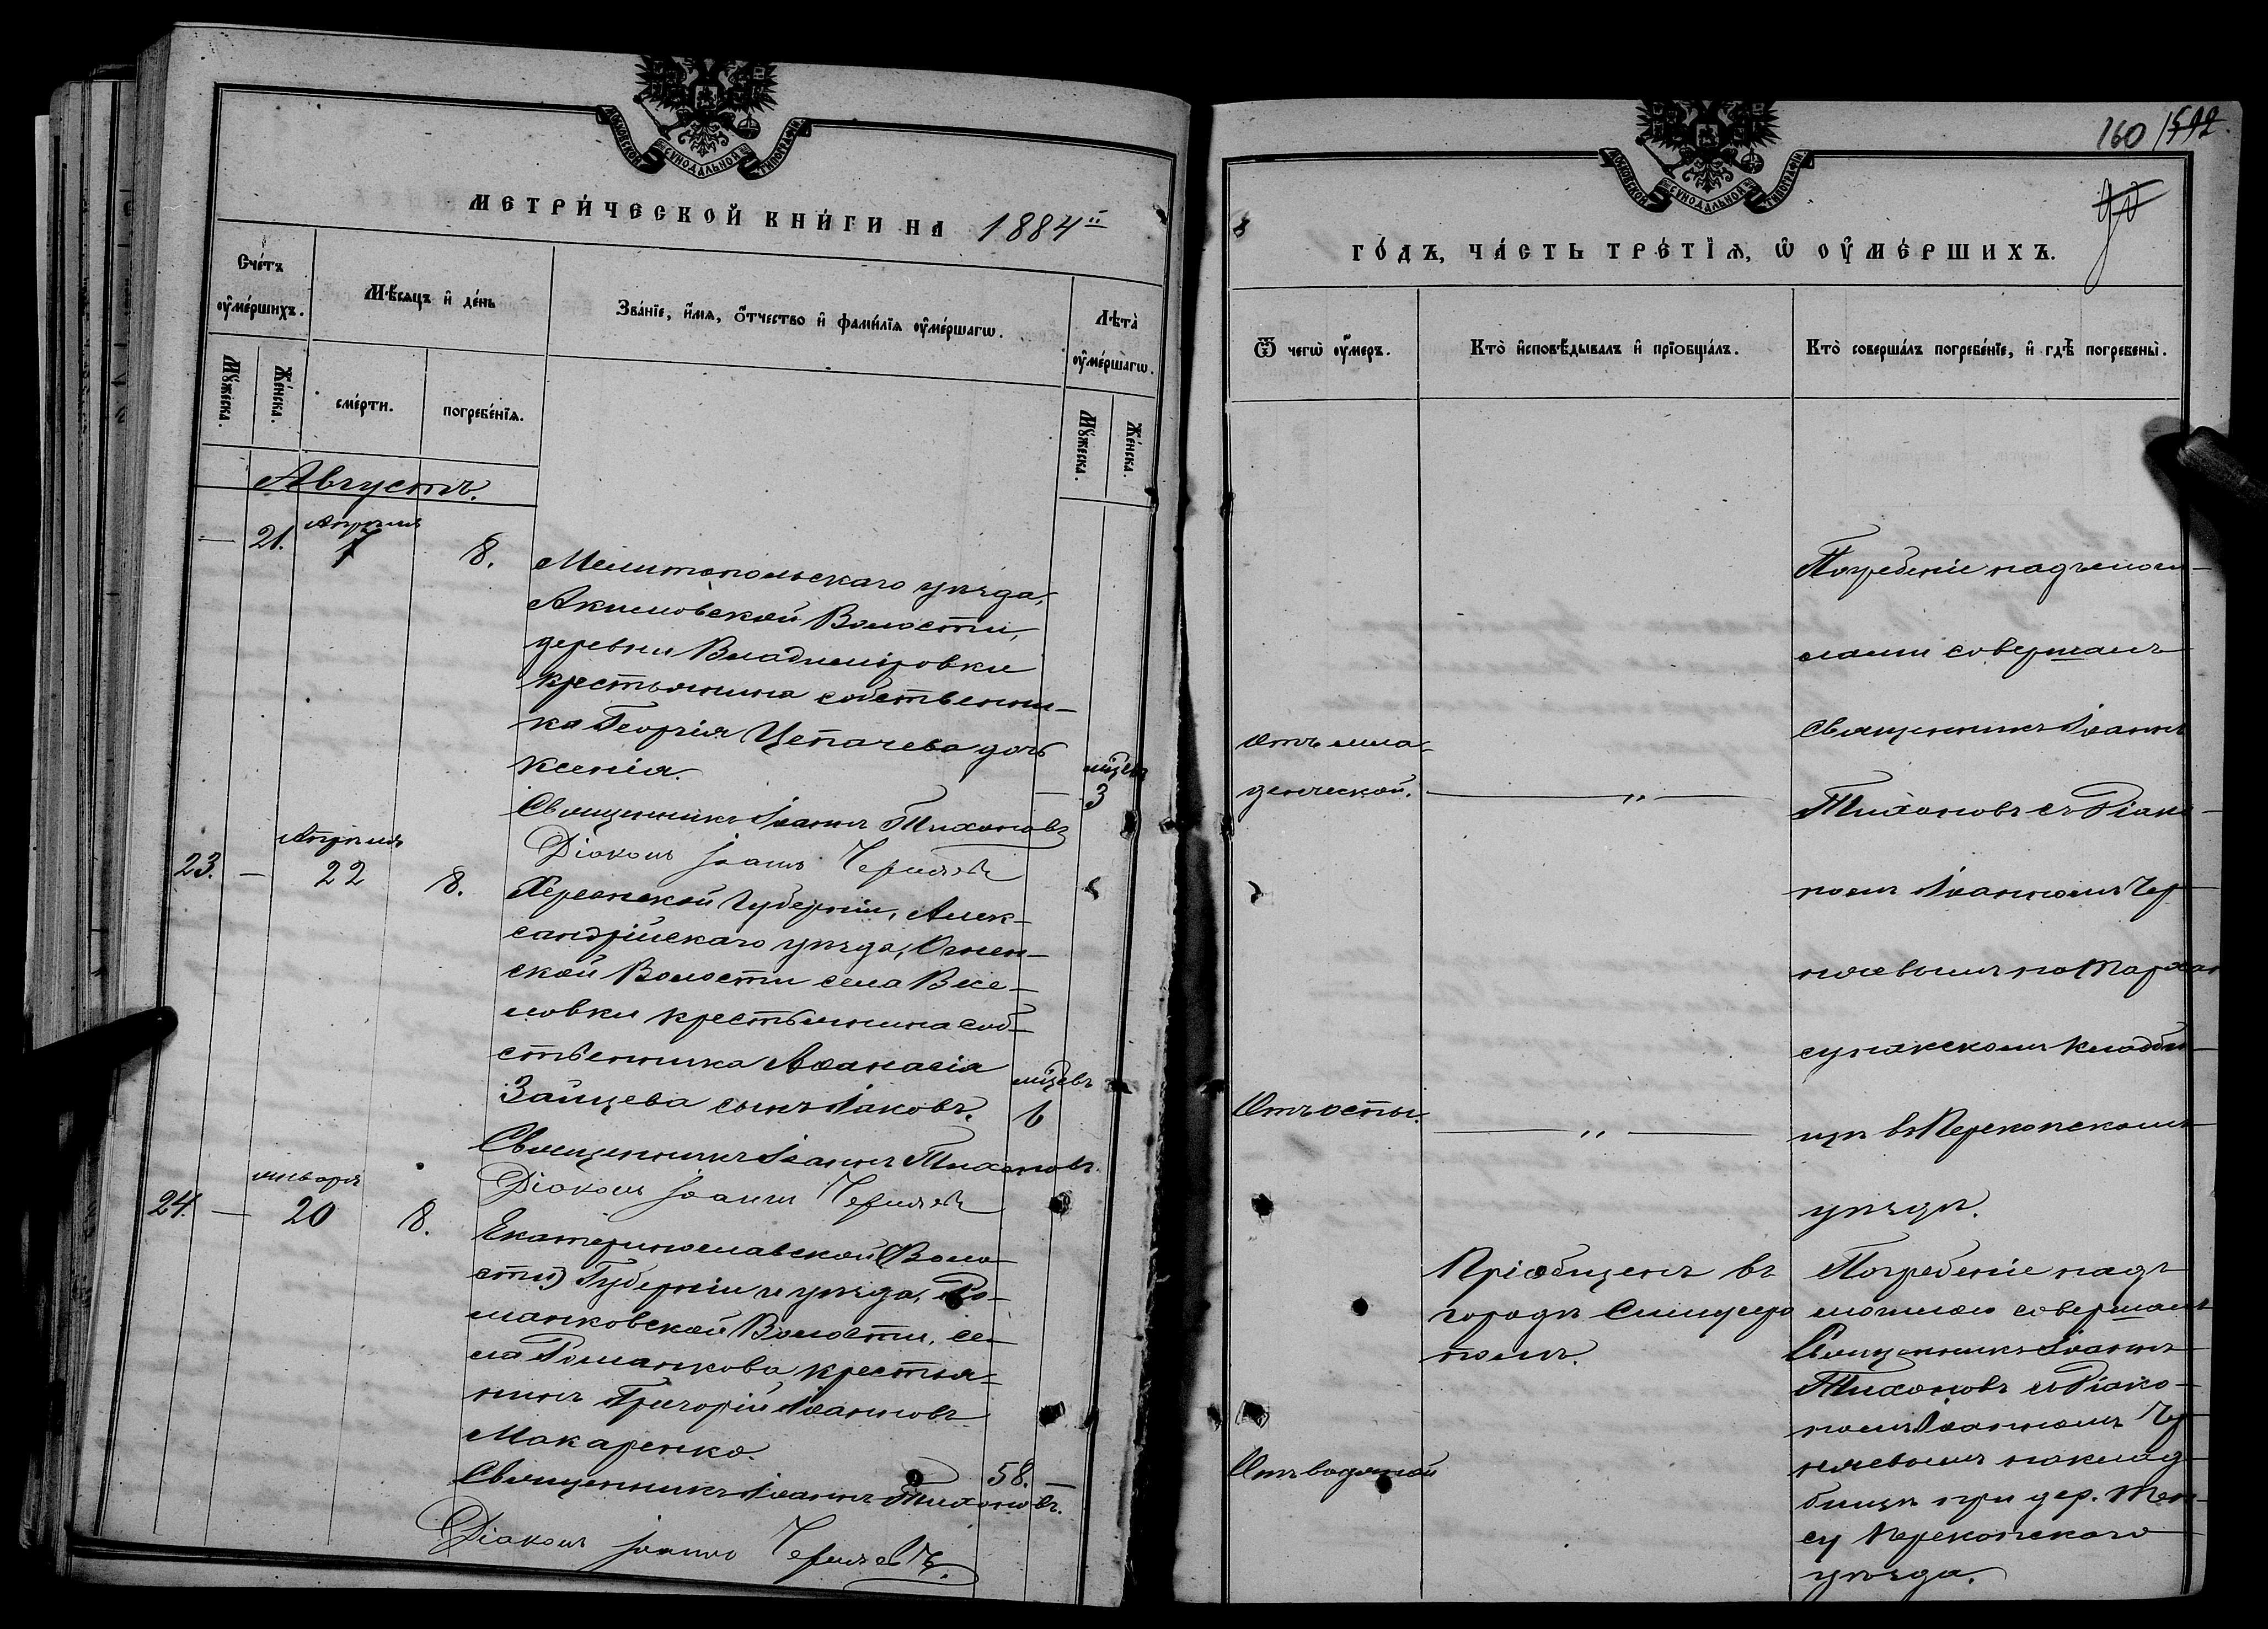 МОСКОВСКОЙ СѴНОДАЛЬНОЙ ТИПОГРАФІИ
МЕТРИ́ЧЕСКОЙ КНИ́ГИ НА 1884й
Сче́тъ ᲂу҆ме́ршихъ.
Мѣ́сяцъ и҆ де́нь
Зва́нїе, и҆́мѧ, ѻ҆́тчество и҆ фами́лїѧ ᲂу҆ме́ршагѡ.
Лѣта̀ ᲂу҆ме́ршагѡ.
Мꙋ́жеска.
Же́нска.
сме́рти.
погребе́нїѧ.
Мꙋ́жеска.
Же́нска.
Августъ.
— 21. Апрѣля 7 8.
Мелитопольскаго уѣзда,
Акимовской Волости,
деревни Владиміровки
крестьянина собственни-
ка Георгія Цепачева дочь
Ксенія.
— мѣсяц. 3
Священникъ Іоаннъ Тихоновъ
Діаконъ Іоаннъ Черняевъ
23. — Апрѣля 22 8.
Херсонской Губерніи, Алек-
сандрійскаго уѣзда,
ской Волости села Весе-
ловки крестьянина соб-
ственника Аѳанасія
Зайцева сынъ Іаковъ.
мѣсяцевъ 6
Священникъ Іоаннъ Тихоновъ.
Діаконъ Іоаннъ Черняевъ
24. — января 20 8.
Екатеринославской (Воло-
сти) Губерніи и уѣзда, Ро-
манковской Волости, се-
ла Романкова крестья-
нинъ Григорій Іоанновъ
Макаренко.
58. —
Священникъ Іоаннъ Тихоновъ.
Діаконъ Іоаннъ Черняевъ.
МОСКОВСКОЙ СѴНОДАЛЬНОЙ ТИПОГРАФІИ
160
8
ГО́ДЪ, ЧА́СТЬ ТРЕ́ТЇѦ, Ѡ҆ ОУ҆МЕ́РШИХЪ.
Ѿ чегѡ̀ ᲂу҆́меръ.
Кто̀ и҆сповѣ́дывалъ и҆ прїѻбща́лъ.
Кто̀ соверша́лъ погребе́нїе, и҆ гдѣ̀ погребены̀.
Отъ мла-
денческой.
— „ —
Погребеніе надъ моги-
лами совершалъ
Священникъ Іоаннъ
Тихоновъ съ Діако-
номъ Іоанномъ Чер-
няевымъ на Тархан
сунакскомъ кладби-
щѣ въ Перекопскомъ
уѣздѣ.
Отъ оспы.
— „ —
Отъ водяной
Пріобщенъ въ
городѣ Симферо
полѣ.
Погребеніе надъ
могилою совершалъ
Священникъ Іоаннъ
Тихоновъ съ Діако-
номъ Іоанномъ Чер-
няевымъ на клад-
бищѣ при дер.
су Перекопскаго
уѣзда.